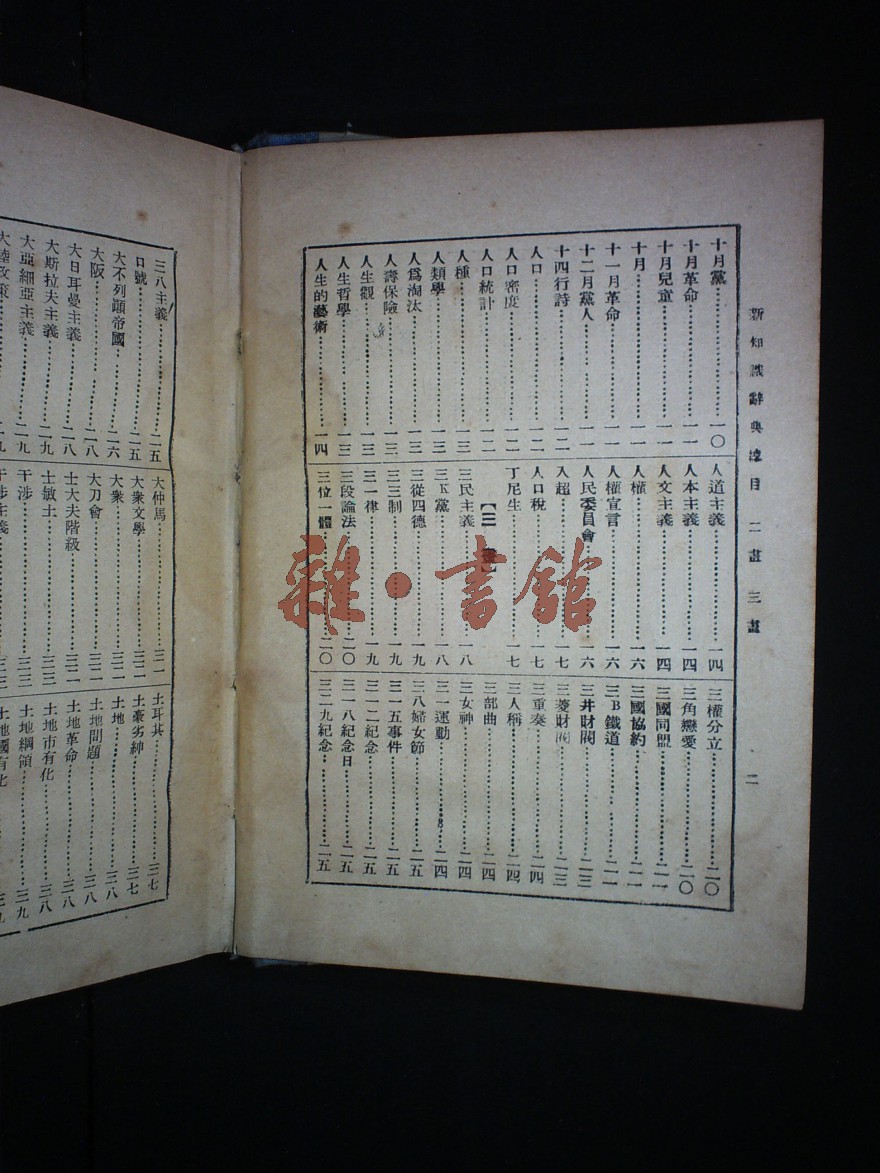 新知識辭典總目 二畫 三畫 二
十月黨……一〇
十月革命……一一
十月兒童……一一
十月……一一
十一月革命……一一
十二月黨人……一一
十四行詩……一二
人口……一二
人口密度……一二
人口統計……一二
人種……一三
人類學……一三
人爲淘汰……一三
人壽保險……一三
人生觀……一三
人生哲學……一三
人生的藝術……一四
人道主義……一四
人本主義……一四
人文主義……一四
人權……一六
人權宣言……一六
人民委員會……一六
入超……一七
人口稅……一七
丁尼生……一七
【三畫】
三民主義……一八
三K黨……一八
三從四德……一九
三三制……一九
三一律……一九
三段論法……二〇
三位一體……二〇
三權分立……二〇
三角戀愛……二〇
三國同盟……二一
三國協約……二一
三B鐵道……二一
三井財閥……二一
三菱財閥……二三
三重奏……二四
三人稱……二四
三部曲……二四
三女神……二四
三一運動……二四
三八婦女節……二五
三一五事件……二五
三一二紀念……二五
三一八紀念日……二五
三二九紀念……二五
三八主義……二五
口號……二五
大不列顛帝國……二六
大阪……二八
大日耳曼主義……二八
大斯拉夫主義……二九
大亞細亞主義……二九
大陸政策
大仲馬……三一
大衆文學……三二
大衆……三二
大刀會……三二
士大夫階級……三二
士敏土……三三
干涉……三三
干涉主義……三三
土耳其……三七
土豪劣紳……三七
土地……三八
土地問題……三八
土地革命……三八
土地市有化……三八
土地綱領……三九
土地國有化……三九
雜·書館